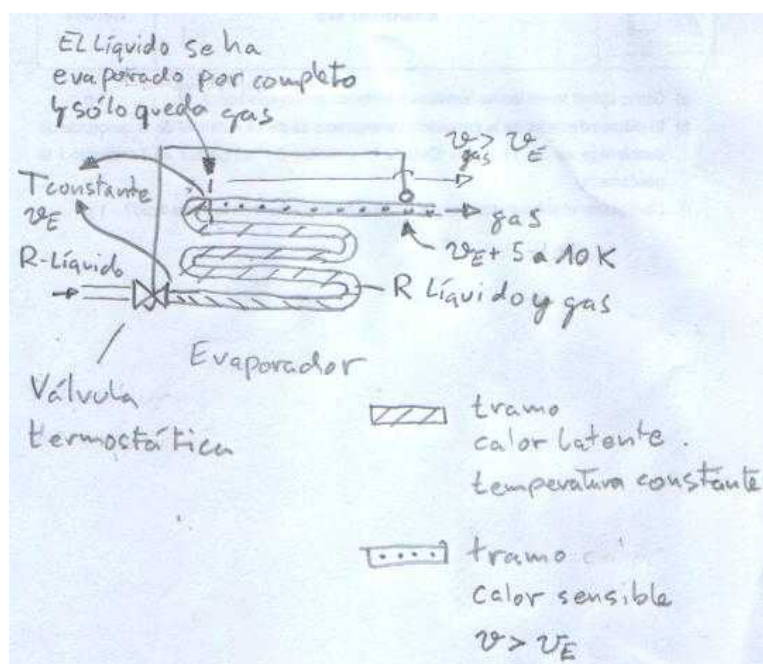 El Líquido se ha
evaporado por completo
y sólo queda gas
ϑgas > ϑE
T constante
ϑE
gas
ϑE + 5 a 10 K
R-Líquido
R Líquido y gas
Evaporador
Válvula
termostática
tramo
calor latente.
temperatura constante
tramo
calor sensible
ϑ > ϑE